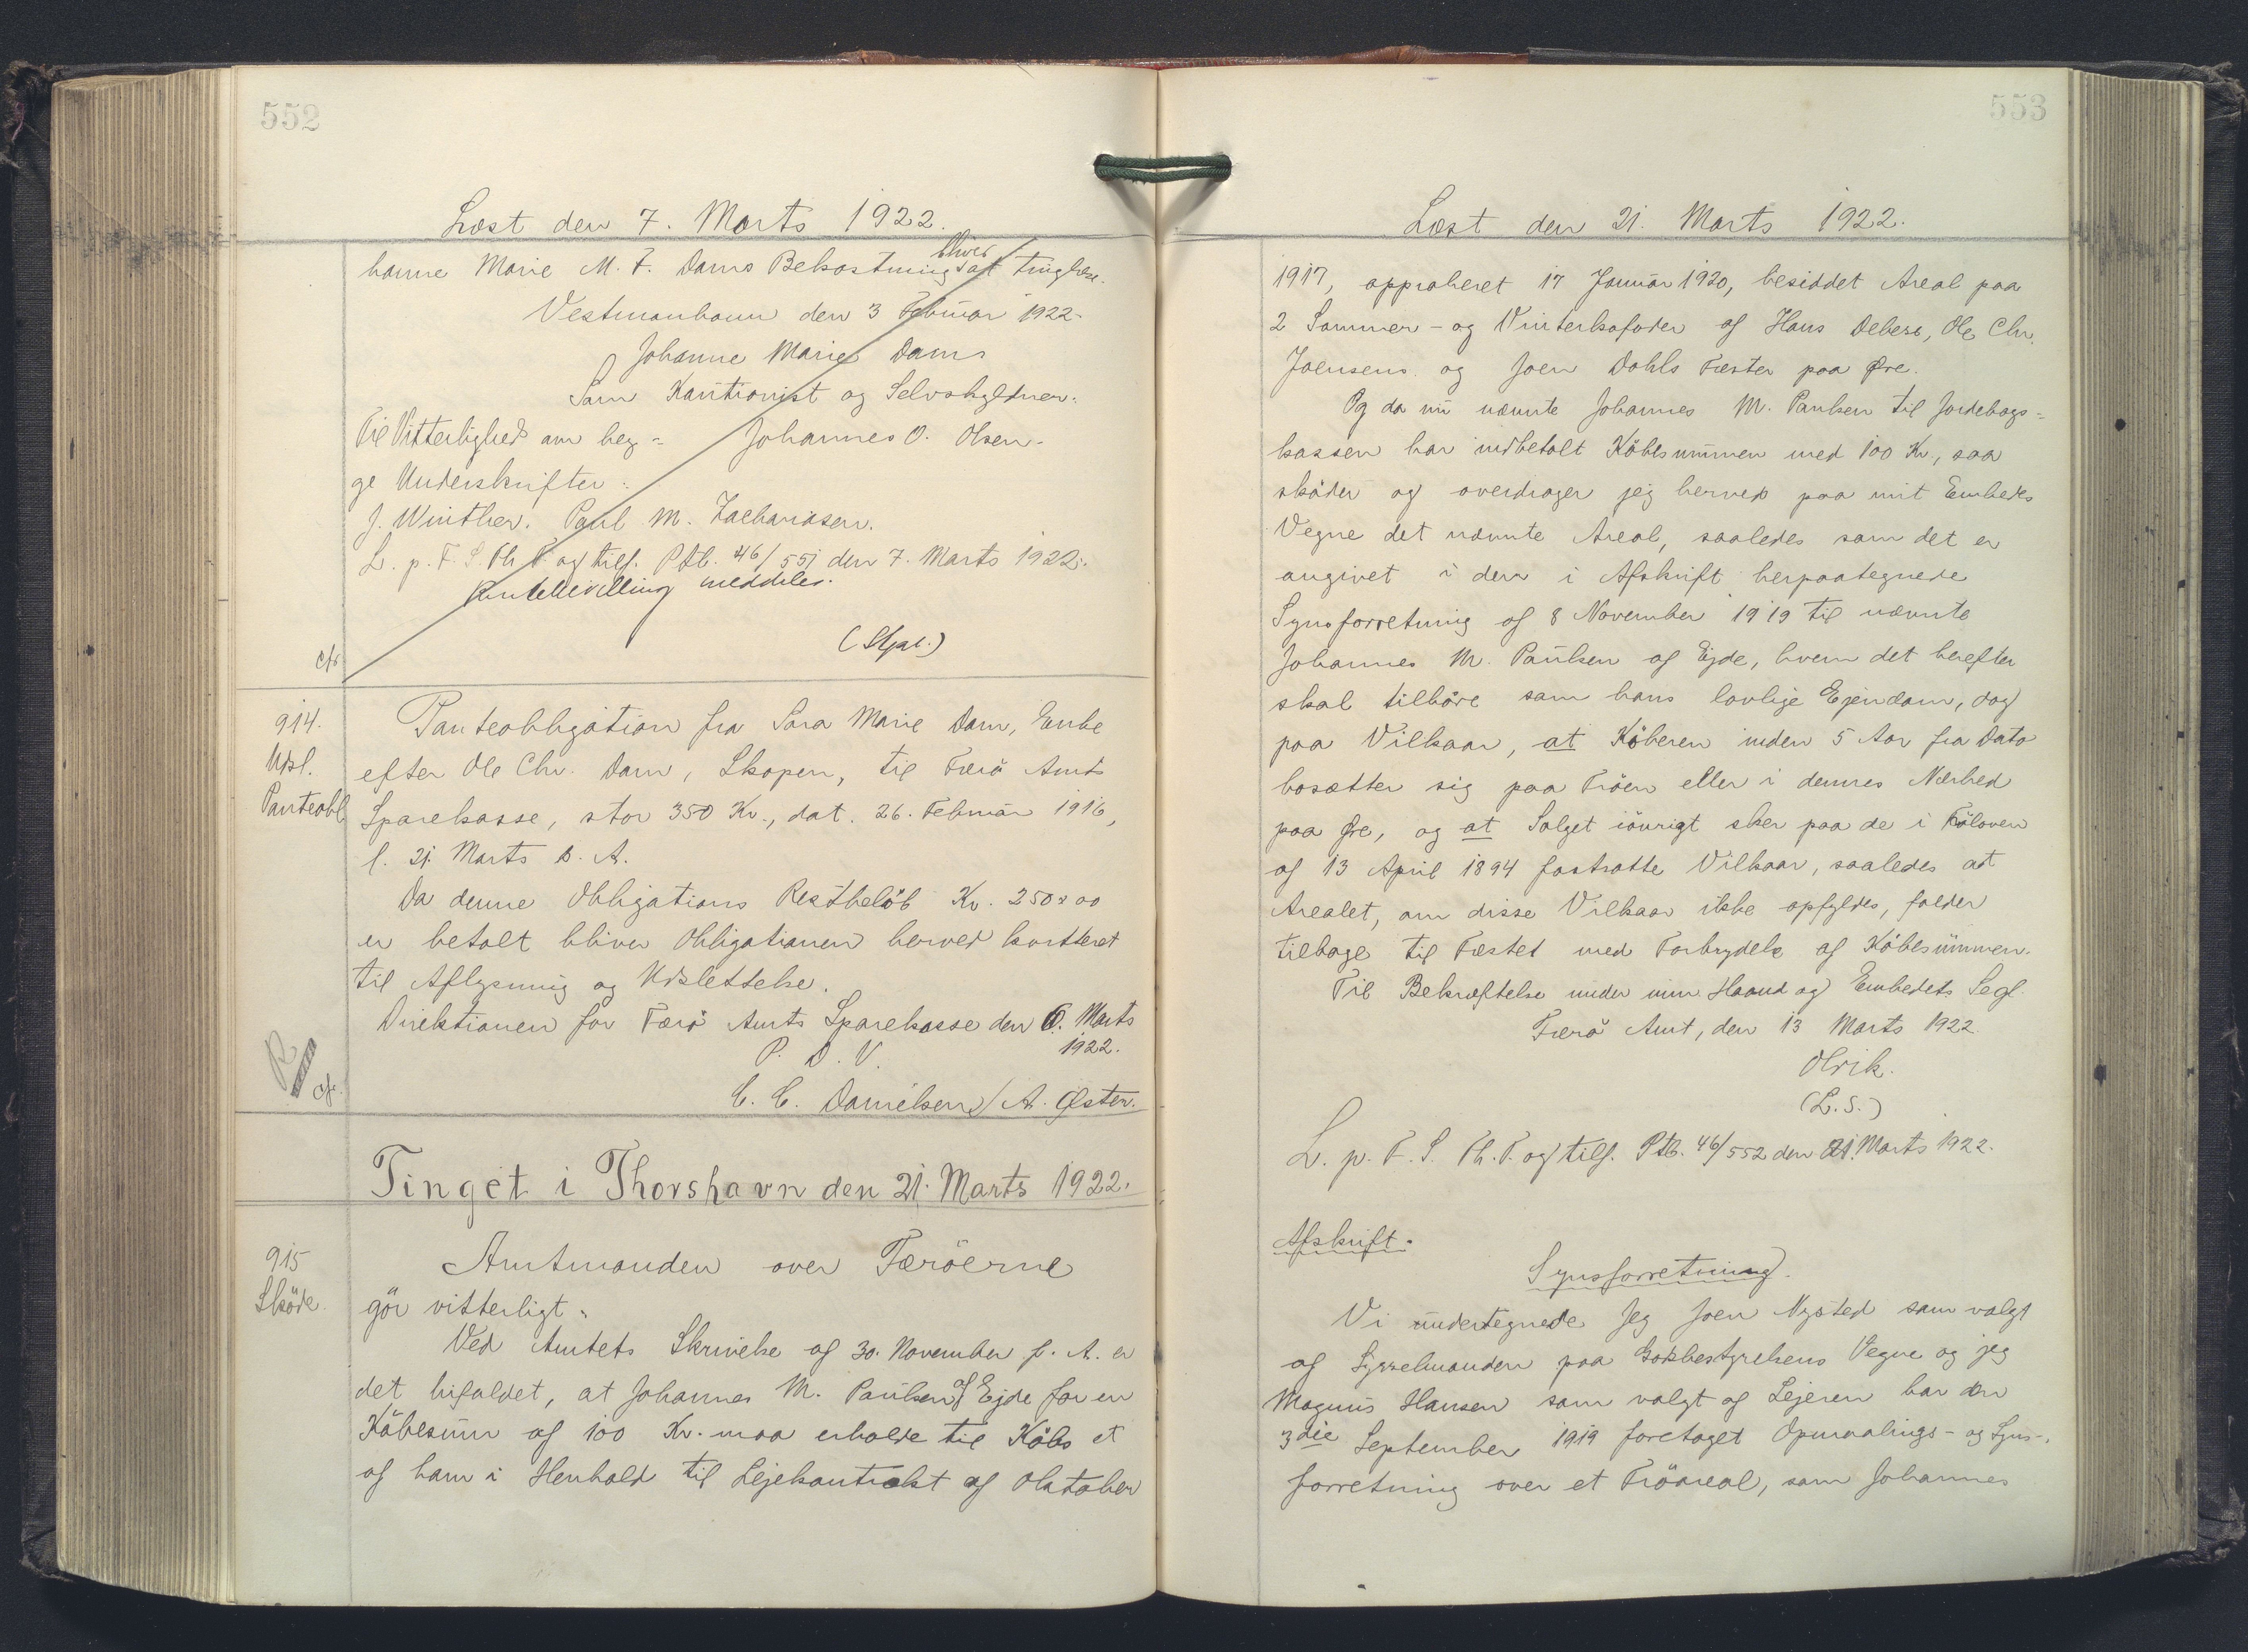 552
Læst den 7. Marts 1922.
hanne Marie M. F. Dams Bekostning at tinglæse.
Vestmanhavn den 3 Februar 1922.
Johanne Marie Dams
Som Kautionist og Selvskyldner:
Til Vitterlighed om beg= Johannes O. Olsen.
ge Underskrifter:
J. Winther. Paul M. Zachariasen.
L. p. F. S. Th. T. og tilf. Ptb. 46/551 den 7. Marts 1922.
Pantebevilling meddeles.
(Stpl.)
cfr
914.
Udsl.
Panteobl
Panteobligation fra Sara Marie Dam, Enke
efter Ole Chr. Dam, Skopen, til Færø Amts
Sparekasse, stor 350 Kr., dat. 26. Februar 1916,
l. 21. Marts s. A.
Da denne Obligations Restbeløb Kr. 250 00
er betalt bliver Obligationen herved kvitteret
til Aflysning og Udslettelse.
Direktionen for Færø Amts Sparekasse den 6. Marts
1922.
P. D. V.
C. C. Danielsen / A. Øster.
cfr.
Tinget i Thorshavn den 21. Marts 1922.
915
Skøde.
Amtmanden over Færöerne
gör vitterligt:
Ved Amtets Skrivelse af 30. November f. A. er
det bifaldet, at Johannes M. Paulsen af Ejde for en
Köbesum af 100 Kr. maa erholde til Köbs et
af ham i Henhold til Lejekontrakt af Oktober
553
Læst den 21. Marts 1922.
1917, approberet 17 Januar 1920, besiddet Areal paa
2 Sommer- og Vinterkofoder af Hans Debess, Ole Chr.
Joensens og Joen Dahls Fæster paa Øre.
Og da nu nævnte Johannes M. Paulsen til Jordebogs=
kassen har indbetalt Köbesummen med 100 Kr., saa
skøder og overdrager jeg herved paa mit Embedes
Vegne det nævnte Areal, saaledes som det er
angivet i den i Afskrift herpaategnede
Synsforretning af 8 November 1919 til nævnte
Johannes M. Paulsen af Ejde, hvem det herefter
skal tilhöre som hans lovlige Ejendom, dog
paa Vilkaar, at Köberen inden 5 Aar fra Dato
bosætter sig paa Tröen eller i dennes Nærhed
paa Øre, og at Salget iövrigt sker paa de i Tröloven
af 13 April 1894 fastsatte Vilkaar, saaledes at
Arealet, om disse Vilkaar ikke opfyldes, falder
tilbage til Fæstet med Forbrydelse af Köbesummen.
Til Bekræftelse under min Haand og Embedets Segl.
Færø Amt, den 13 Marts 1922.
Olrik.
(L. S.)
L. p. F. S. Th. T. og tilf. Ptb. 46/552 den 21. Marts 1922.
Afskrift.
Synsforretning.
Vi undertegnede Jeg Joen Nysted som valgt
af Sysselmanden paa Godsbestyrelsens Vegne og jeg
Magnus Hansen som valgt af Lejeren har den
3die September 1919 foretaget Opmaalings- og Syns-
forretning over et Tröareal, som Johannes